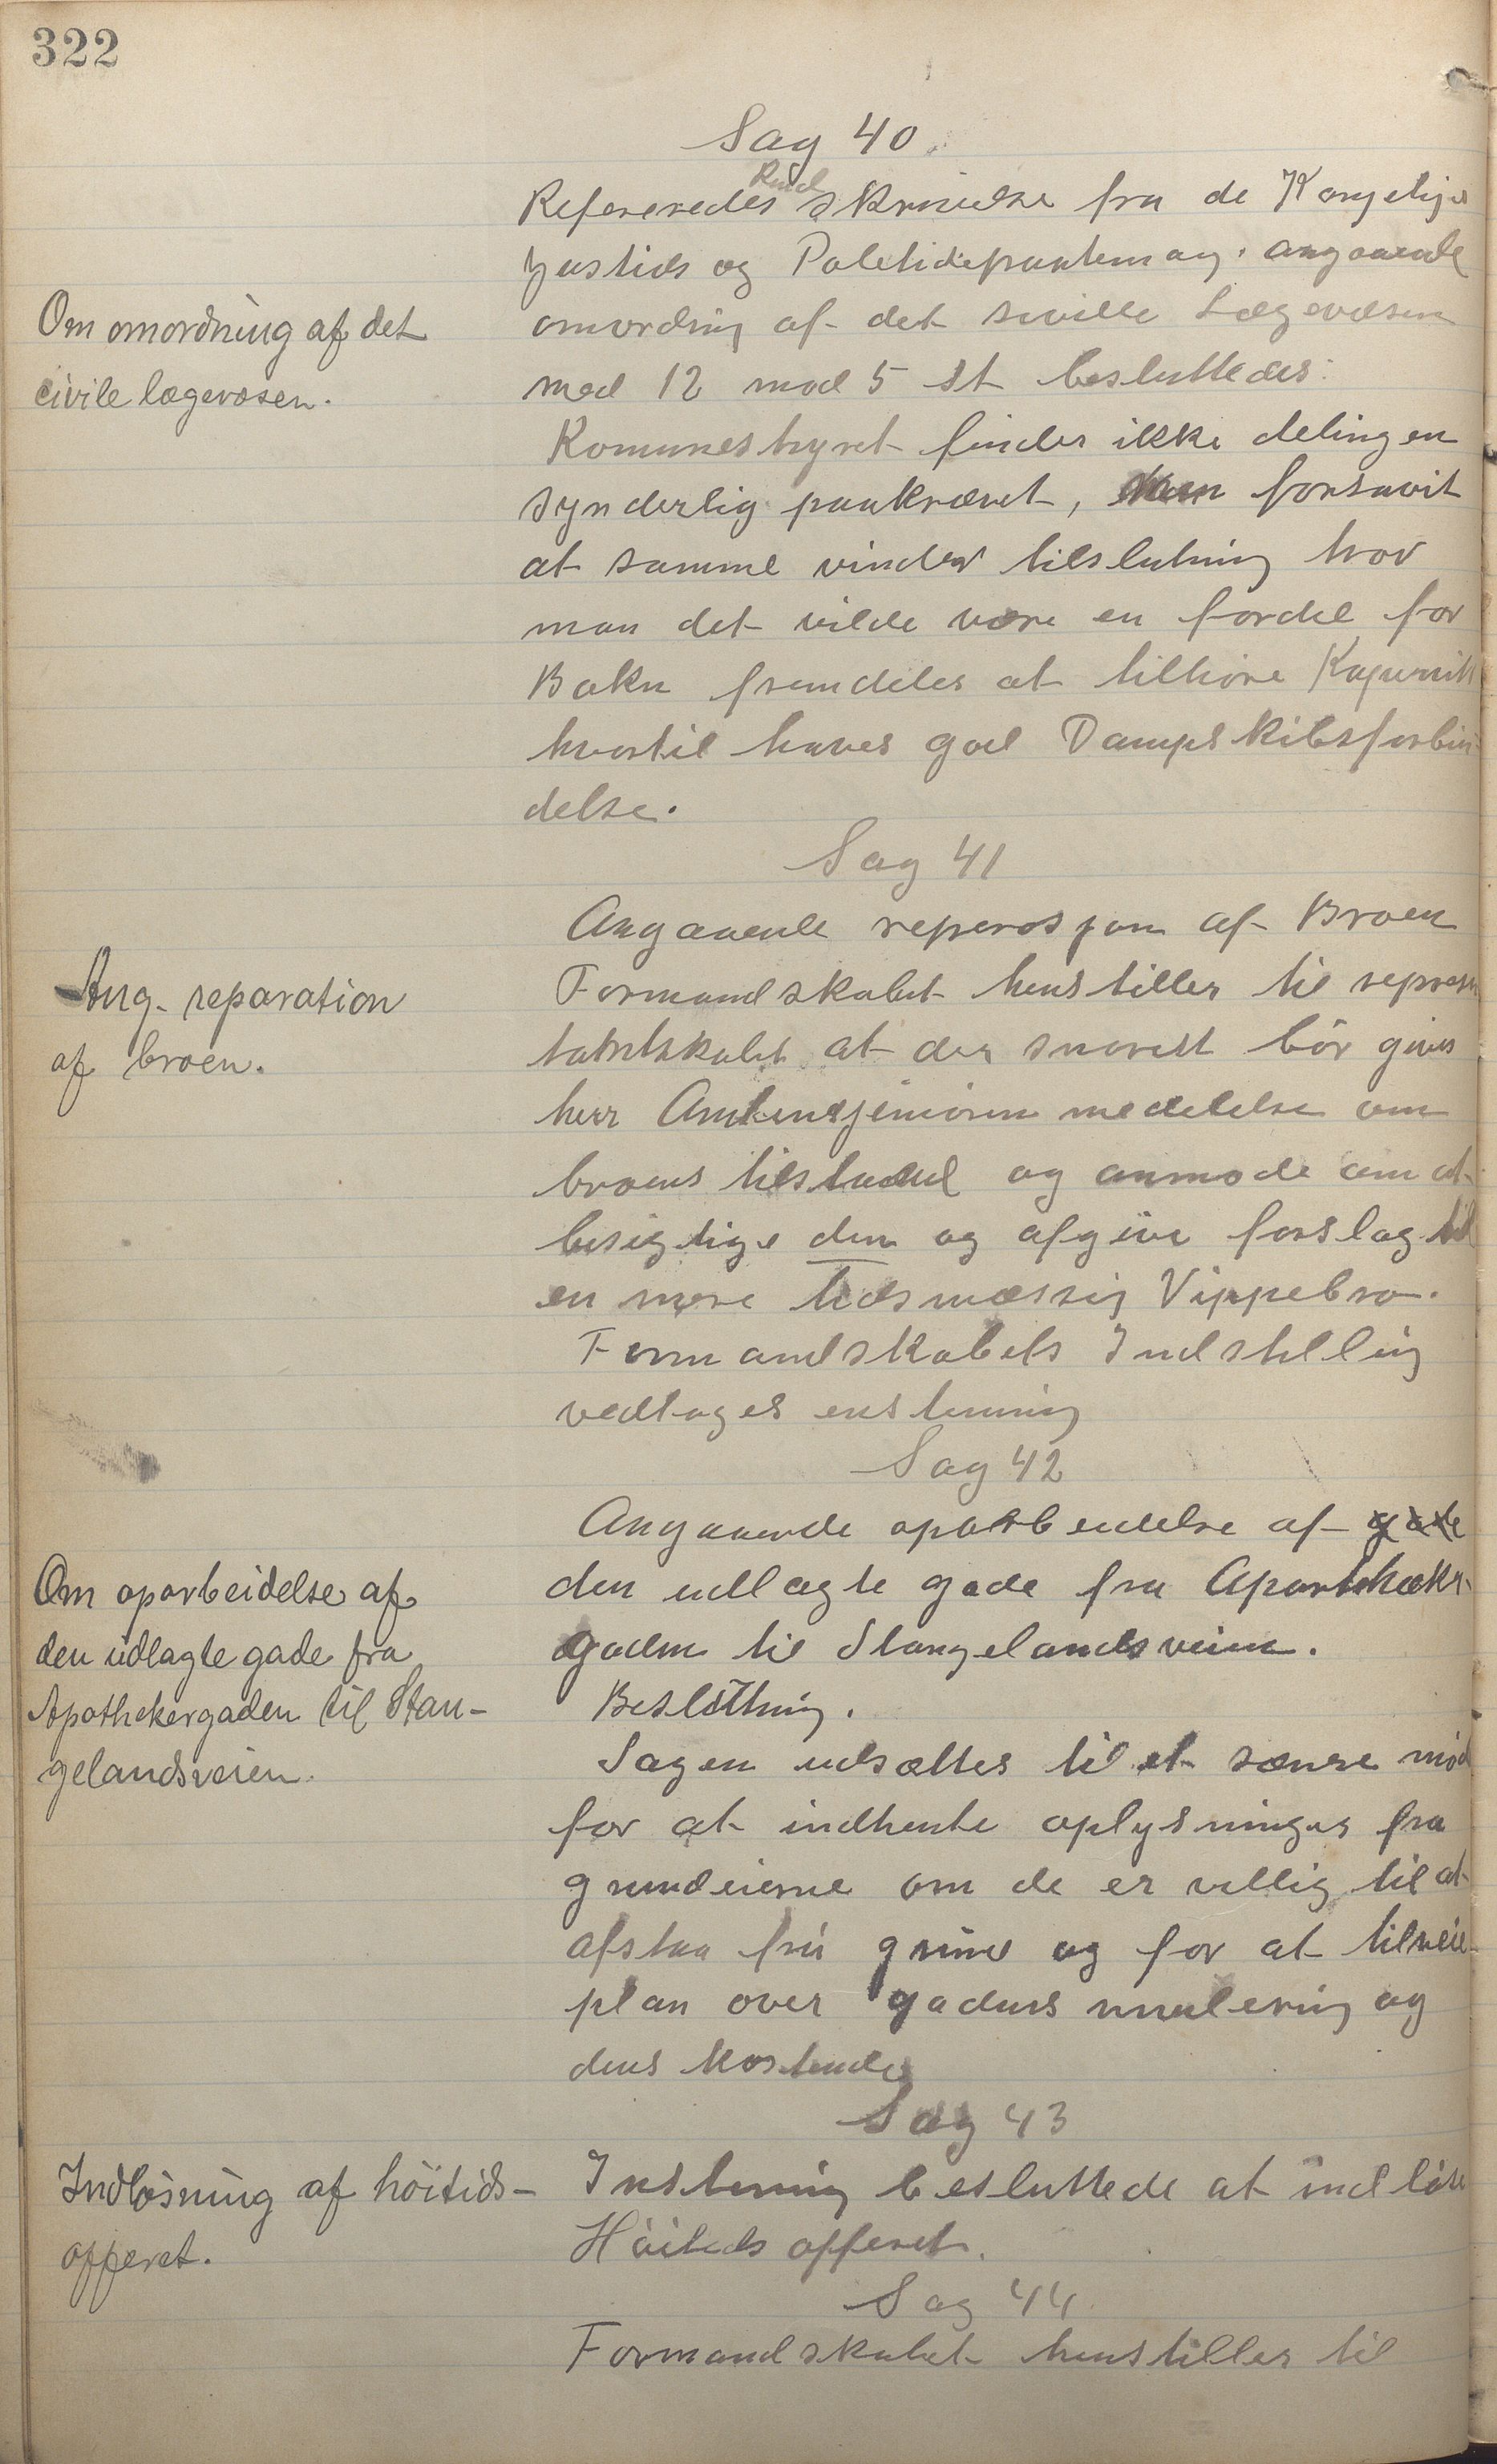 322
Sag 40.
Rund
Refereredes skrivelse fra de Kongelige
Justids og Politidepartemang. angaaende
Om omordning af det
civile lægevæsen.
omordning af det siville Lægevæsen
med 12 mod 5 st besluttedes:
Komunestyret finder ikke delingen
synderlig paakrævet, men forsavit
at samme vinder tilslutning tror
man det vilde være en fordel for
Bokn fremdeles at tilhøre Kopervik
hvortil haves god Dampskibsforbin
delse.
Sag 41
Angaaende reperasjon af Broen
Ang. reparation
af broen.
Formandskabet henstiller til represen
tatntskabet at der snarest bør gives
herr Amtensjeniøren medelelse om
broens tilstand og anmode om at
besigtige den og afgive forslag til
en mere tidsmæssig Vippebro.
Formandskabets Indstilling
vedtages enstemmig
Sag 42
Angaaende oparbeidelse af gade
Om oparbeidelse af
den udlagte gade fra
Apothekergaden til Stan-
gelandsveien.
den udlagte gade fra Aparthæker
gaden til Stangelandsveien.
Beslutning.
Sagen udsættes til et senere møde
for at indhente oplysninger fra
grundeierne om de er villig til at
afstaa fri grund og for at tilveie
plan over gadens nivulering og
dens kostende
Sag 43
Indløsning af høitids-
offeret.
Enstemig besluttede at indløse
Høitids offeret.
Sag 44
Formandskabet henstiller til